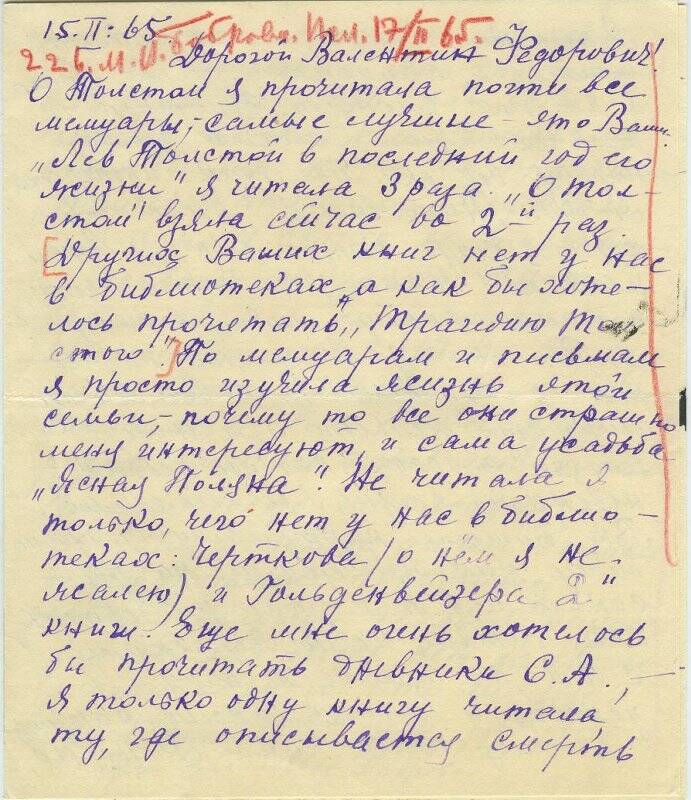 15.II.65
22 Б. М. И. Бобровн. Исп. 17/II 65.
Дорогой Валентин Федорович!
О Толстом я прочитала почти все
мемуары,– самые лучшие – это Ваши.
„Лев Толстой в последний год его
жизни" я читала 3 раза. „О Тол-
стом" взяла сейчас во 2-й раз.
[Других Ваших книг нет у нас
в библиотеках, а как бы хоте-
лось прочитать „Трагедию То
стого".] По мемуарам и письмам
я просто изучила жизнь этой
семьи,– почему то все они страшно
меня интересуют, и сама усадьба
„Ясная Поляна". Не читала я
только, чего нет у нас в библио-
теках: Черткова (о нём я не
жалею) и Гольденвейзера 2"
книги. Еще мне очень хотелось
бы прочитать дневники С.А., –
я только одну книгу читала
ту, где описывается смерть